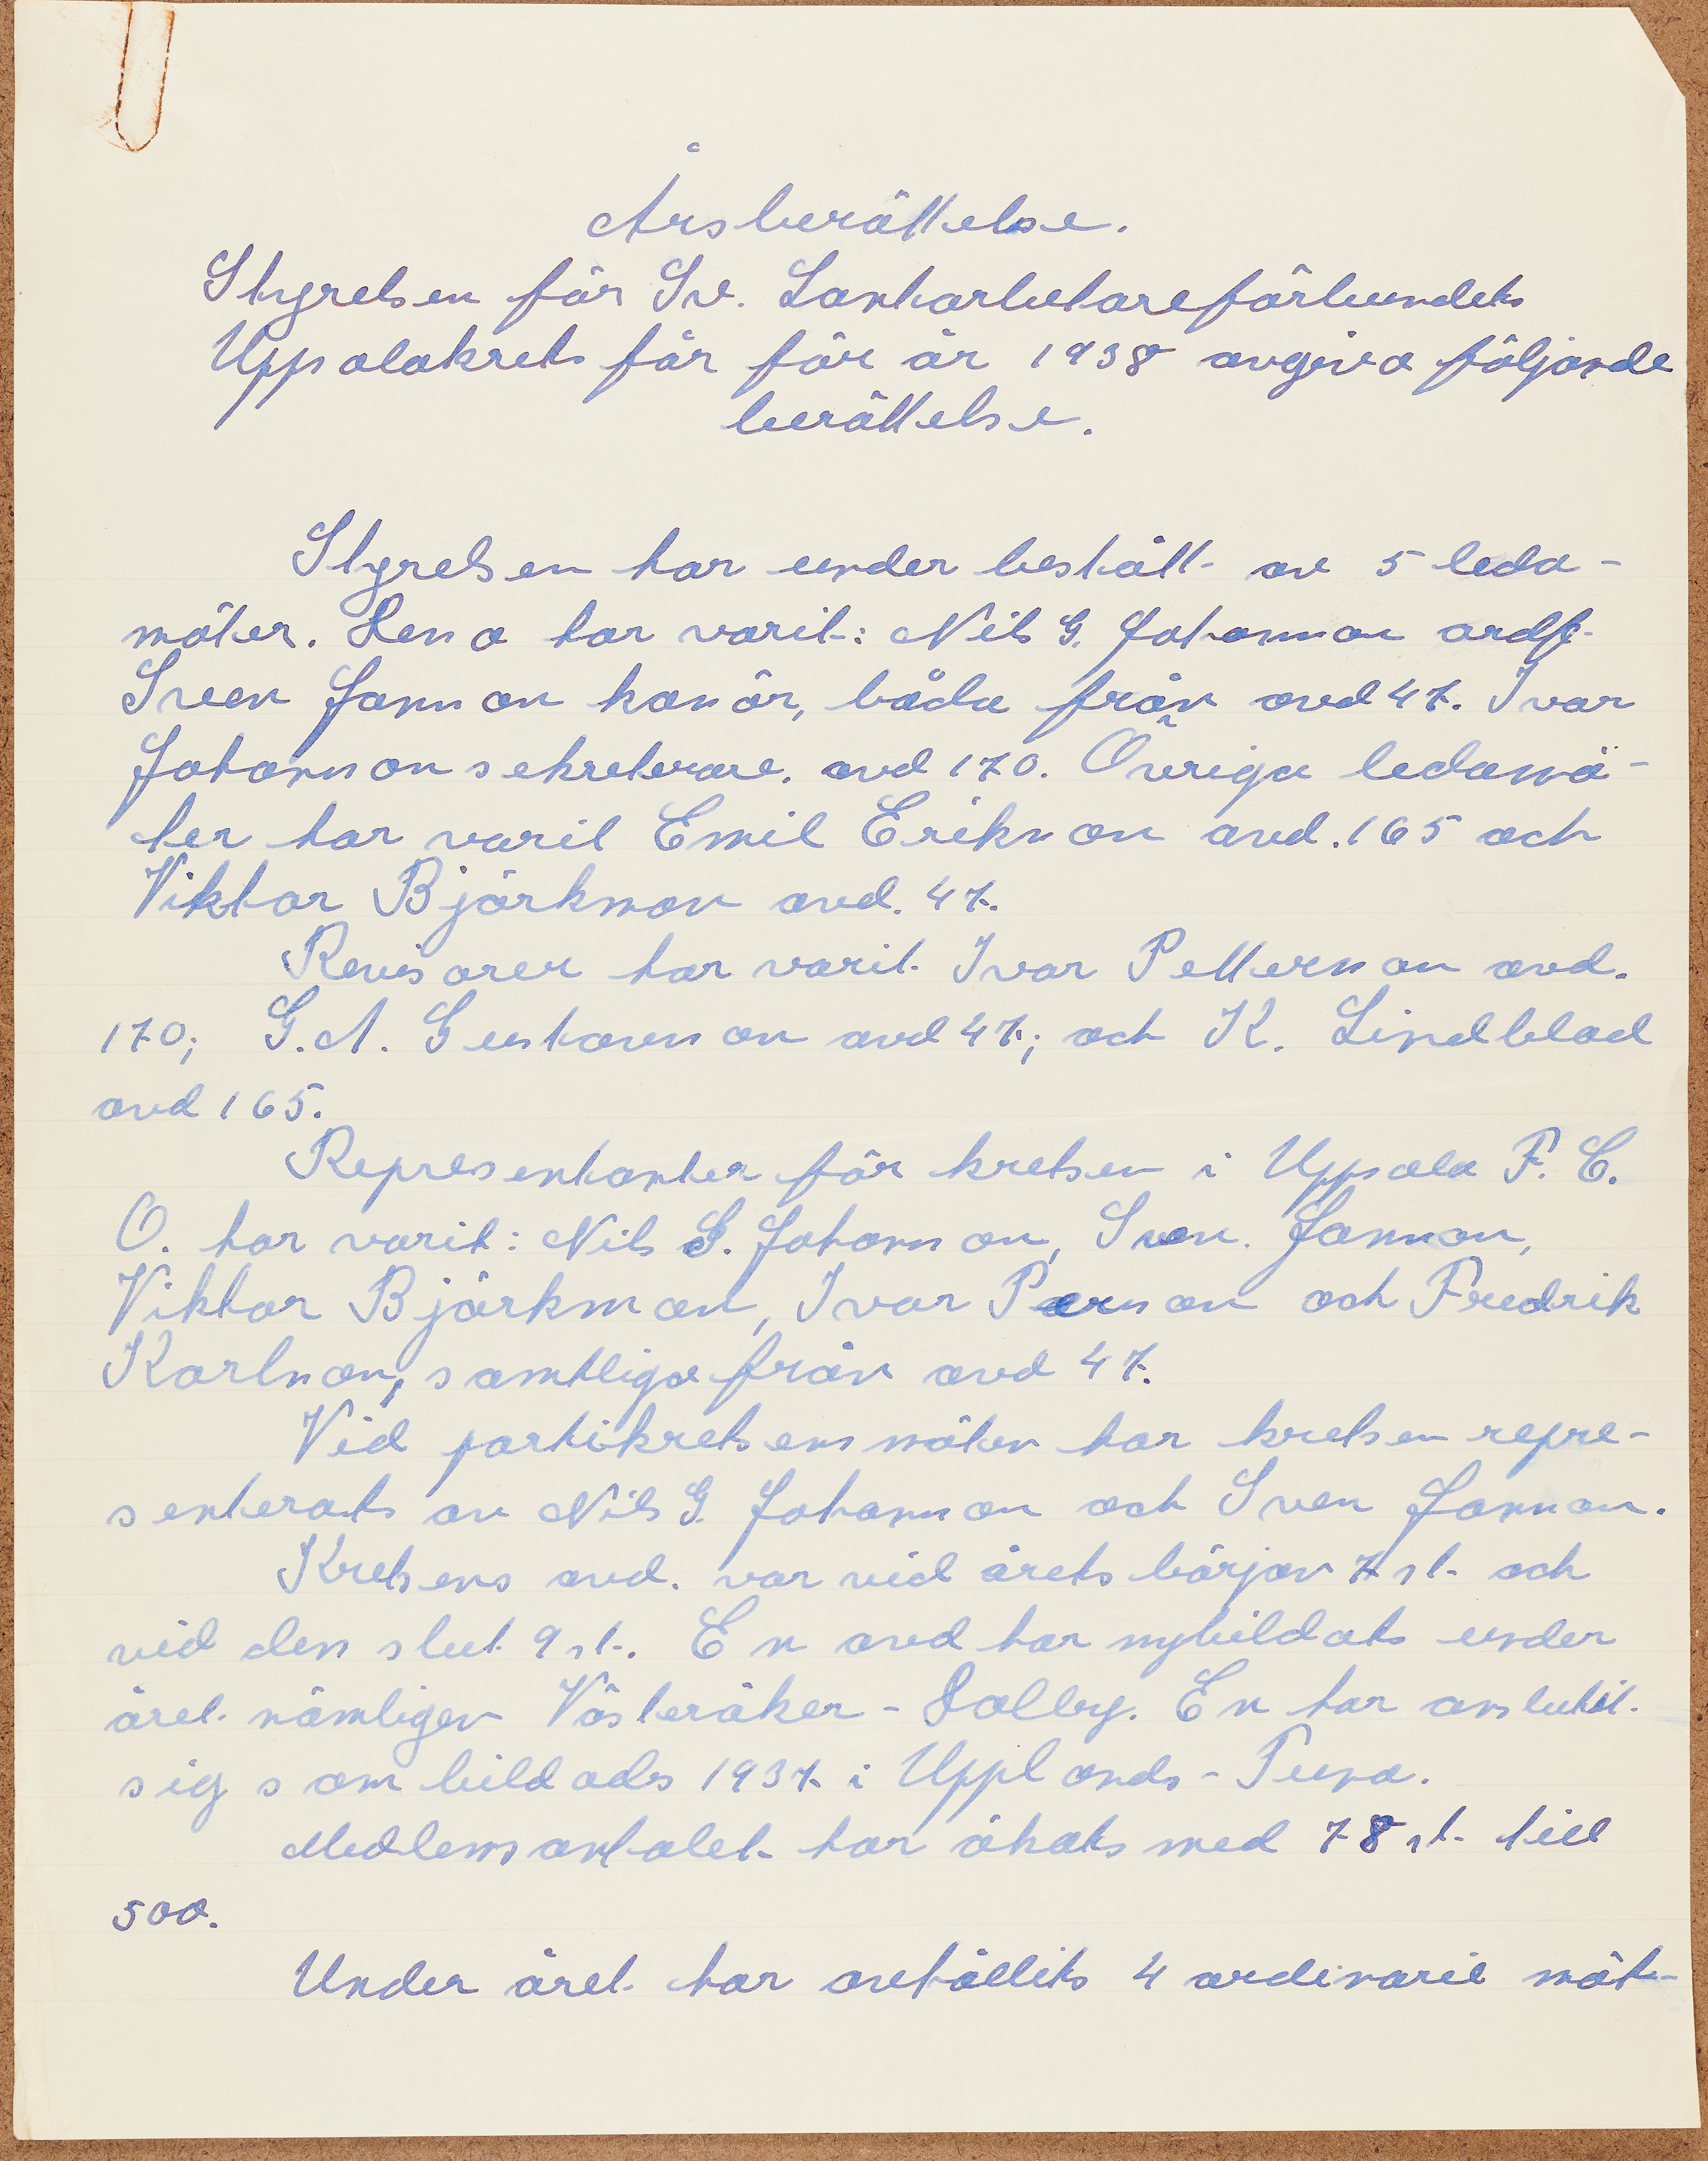 Årsberättelse.
Styrelsen för Sv. Lantarbetareförbundets
Uppsalakrets får för år 1938 avgiva följande
berättelse.
Styrelsen har under bestått av 5 leda-
möter. Dessa har varit: Nils G. Johansson ordf.
Sven Jansson kassör, båda från avd 47. Ivar
Johansson sekreterare. avd 170. Övriga ledamö-
ter har varit Emil Eriksson avd. 165 och
Viktor Björkman avd. 47.
Revisorer har varit Ivar Pettersson avd.
170; G.A. Gustavsson avd 47; och K. Lindblad
avd 165.
Representanter för kretsen i Uppsala F. C.
O. har varit: Nils G. Johansson, Sven Jansson,
Viktor Björkman, Ivar Persson och Fredrik
Karlsson, samtliga från avd 47.
Vid partikretsens möten har kretsen repre-
senterats av Nils G. Johansson och Sven Jansson.
Kretsens avd. var vid årets början 7 st. och
vid dess slut 9 st. En avd har nybildats under
året nämligen Västeråker-Dalby. En har anslutit
sig som bildades 1937 i Upplands-Tuna.
Medlemsantalet har ökats med 78 st. till
500.
Under året har avhållits 4 ordinarie möt-